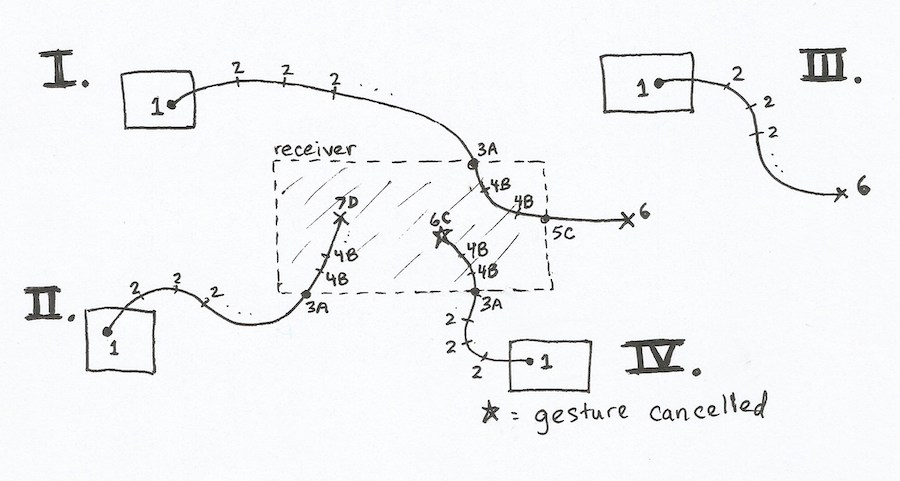 I.
1
2
2
2
III.
1
2
2
2
6
receiver
3A
4B
4B
5C
6
7D
4B
4B
3A
6C
4B
4B
3A
2
2
2
1
IV.
II.
1
2
2
2
★ = gesture cancelled